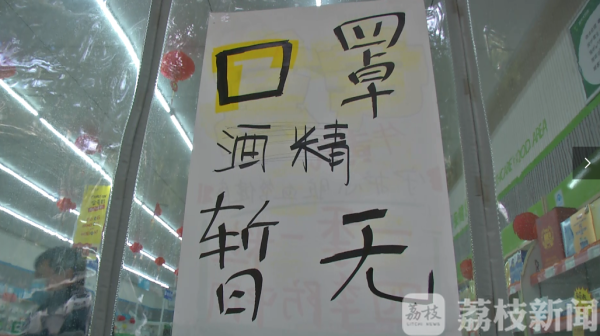 口罩
酒精
暂无
荔枝
荔枝新闻